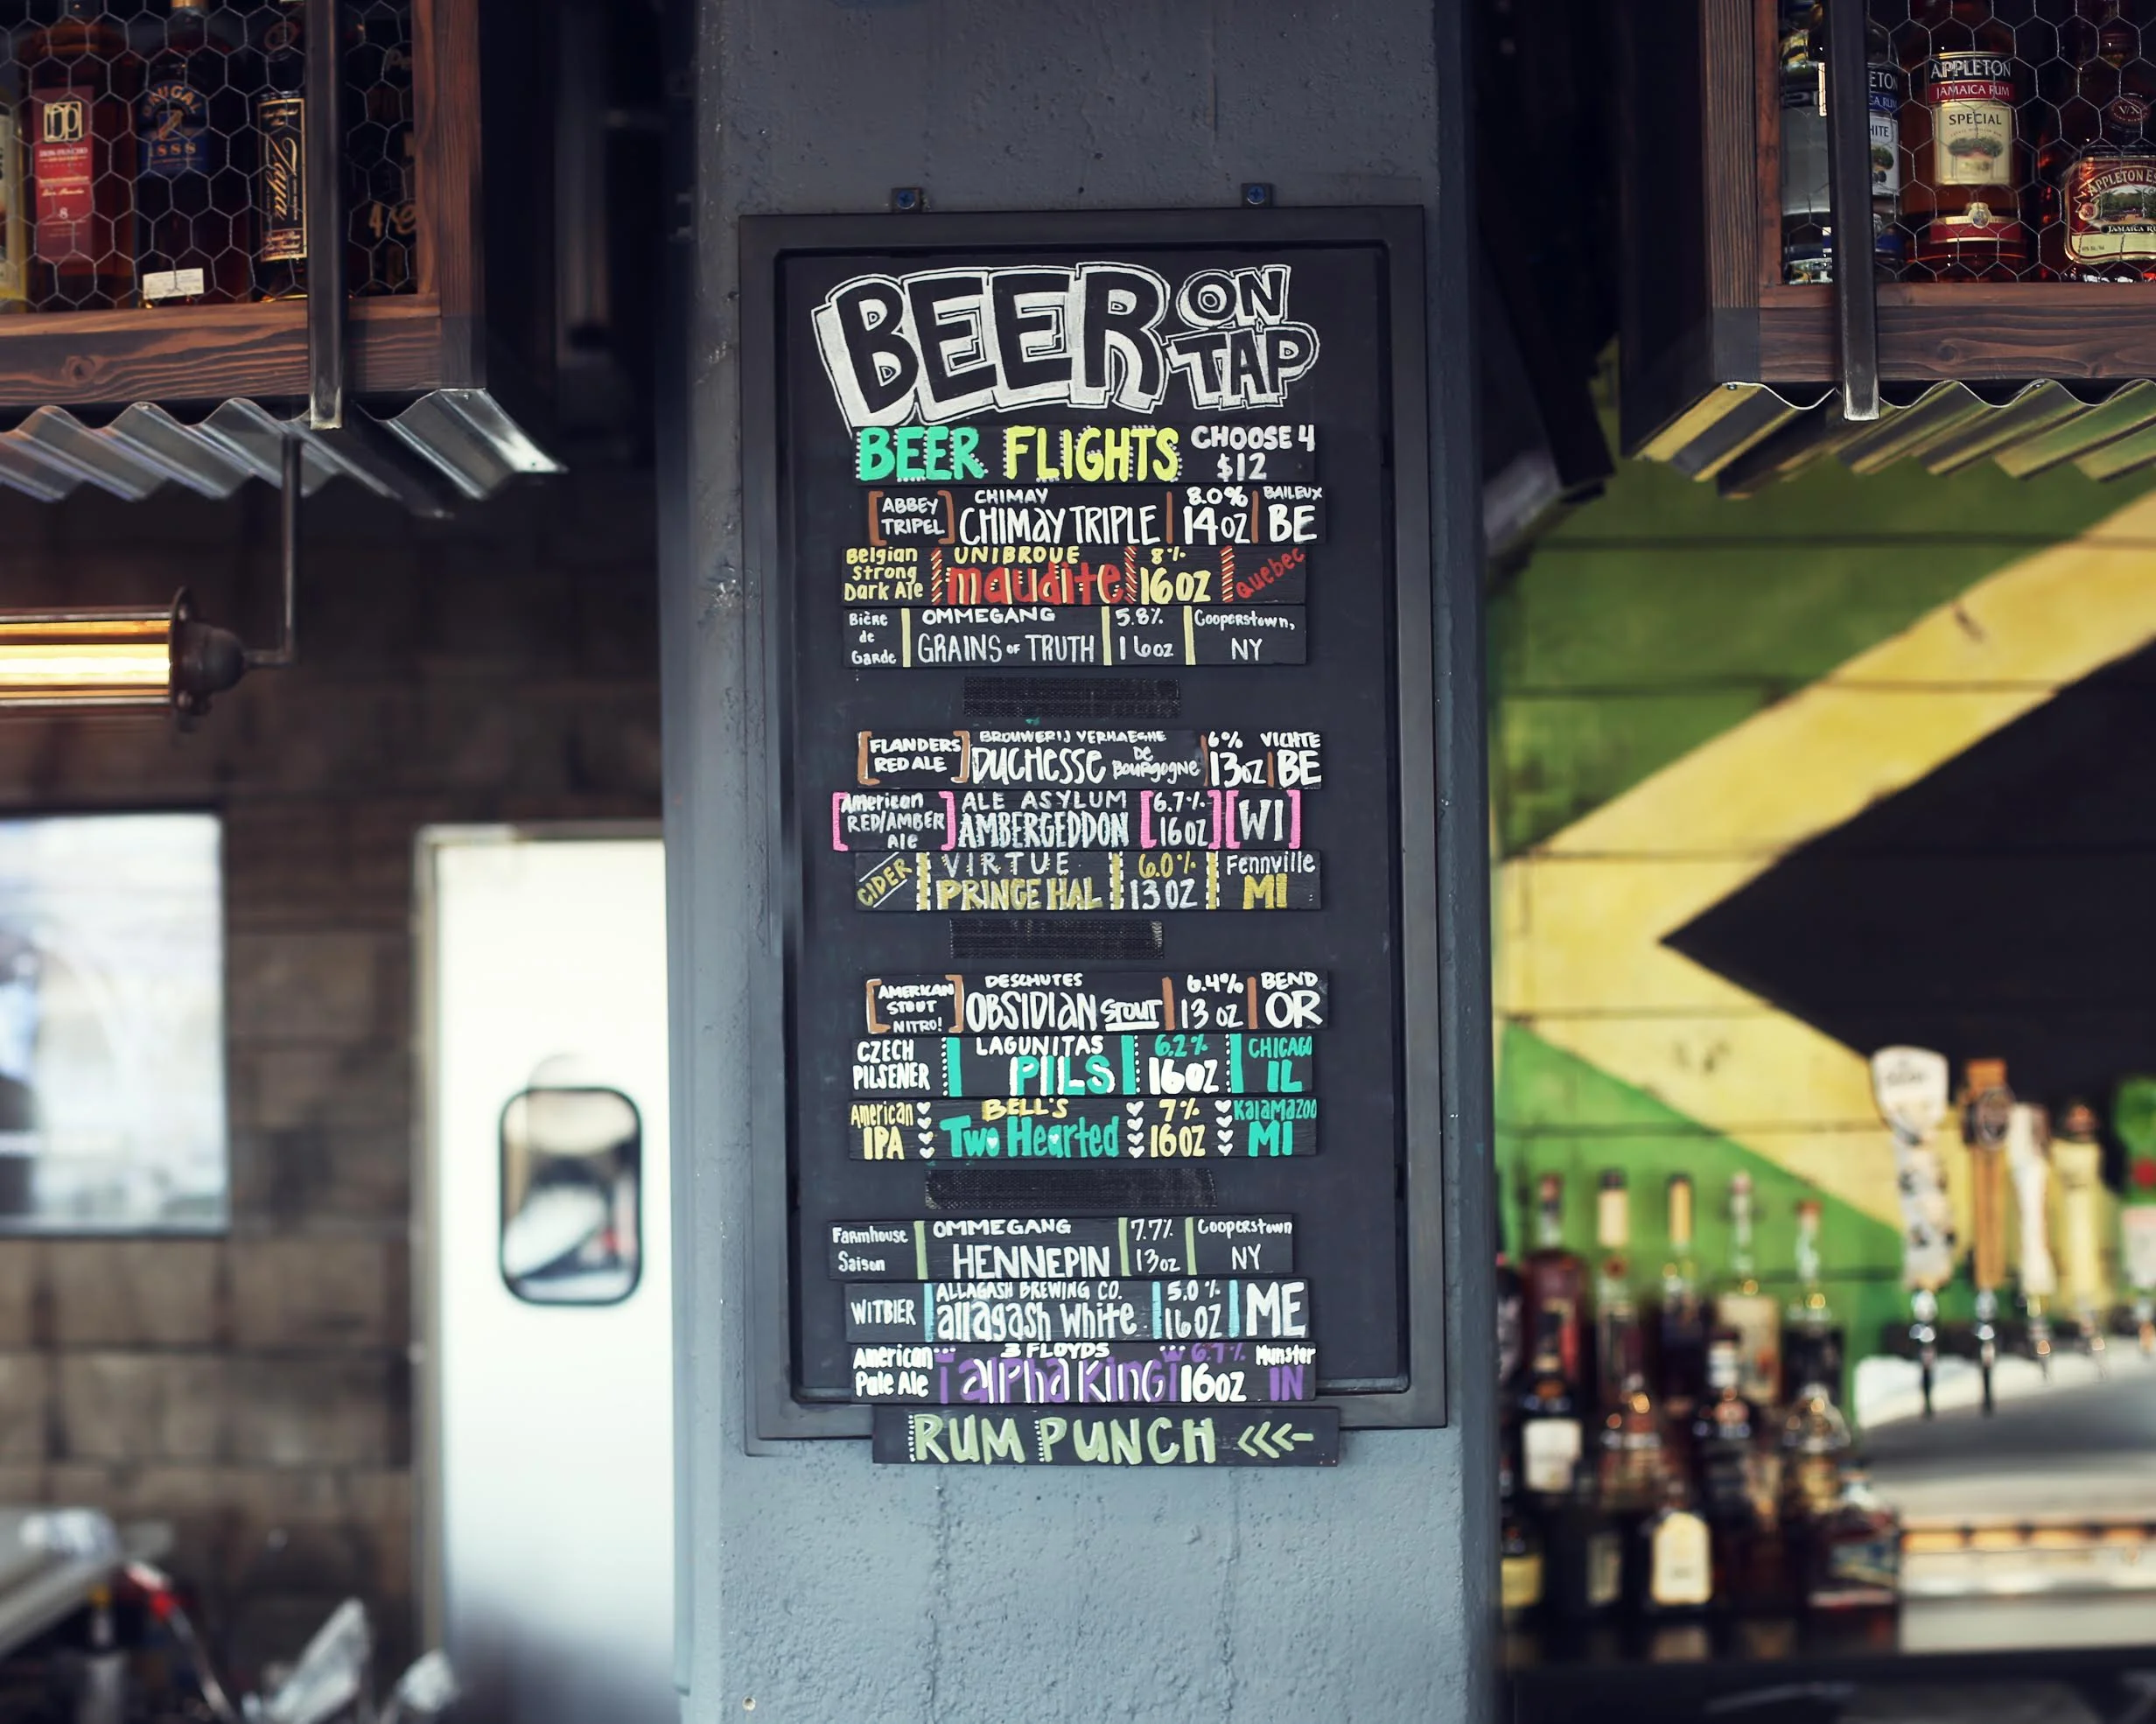 DON PANCHO
8
BRUGAL
1888
Zaya
APPLETON
JAMAICA RUM
SPECIAL
APPLETON
JAMAICA
BEER ON TAP
BEER FLIGHTS CHOOSE 4 $12
ABBEY TRIPEL CHIMAY CHIMAY TRIPLE 8.0% 14OZ BAILEUX BE
Belgian Strong Dark Ale UNIBROUE maudite 8% 16OZ Quebec
Bière de Garde OMMEGANG GRAINS OF TRUTH 5.8% 16oz Cooperstown, NY
FLANDERS RED ALE BROUWERIJ VERHAEGHE DUCHESSE DE BOURGOGNE 6% 13OZ VICHTE BE
American RED/AMBER Ale ALE ASYLUM AMBERGEDDON 6.7% 16OZ WI
CIDER VIRTUE PRINCE HAL 6.0% 13OZ Fennville MI
AMERICAN STOUT NITRO! DESCHUTES OBSIDIAN STOUT 6.4% 13 OZ BEND OR
CZECH PILSENER LAGUNITAS PILS 6.2% 16OZ CHICAGO IL
American IPA BELL'S Two Hearted 7% 16OZ Kalamazoo MI
Farmhouse Saison OMMEGANG HENNEPIN 7.7% 13oz Cooperstown NY
WITBIER ALLAGASH BREWING CO. allagash white 5.0% 16OZ ME
American Pale Ale 3 FLOYDS alpha King 6.7% 16OZ Munster IN
RUM PUNCH <<<-